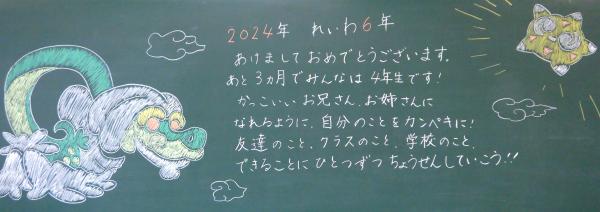 2024年 れいわ6年
あけましておめでとうございます。
あと3ヵ月でみんなは4年生です!
かっこいいお兄さん、お姉さんに
なれるように、自分のことをカンペキに!
友達のこと、クラスのこと、学校のこと、
できることにひとつずつちょうせんしていこう!!